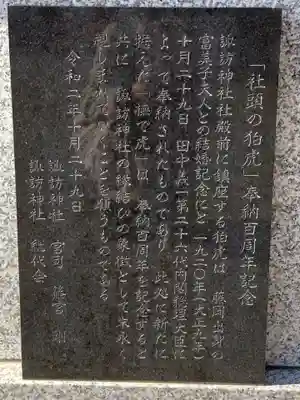 「社頭の狛虎」奉納百周年記念
諏訪神社社殿前に鎮座する狛虎は、藤岡出身の
富美子夫人との結婚記念にと一九二〇年(大正九年)
十月二十九日、田中義一第二十六代内閣総理大臣に
よって奉納されたものであり、此処に新たに
据えた「撫で虎」は、奉納百周年を記念すると
共に、諏訪神社の縁結びの象徴として末永く
愛しまれていくことを願うものである
令和二年十月二十九日
諏訪神社 宮司
諏訪神社 総代会